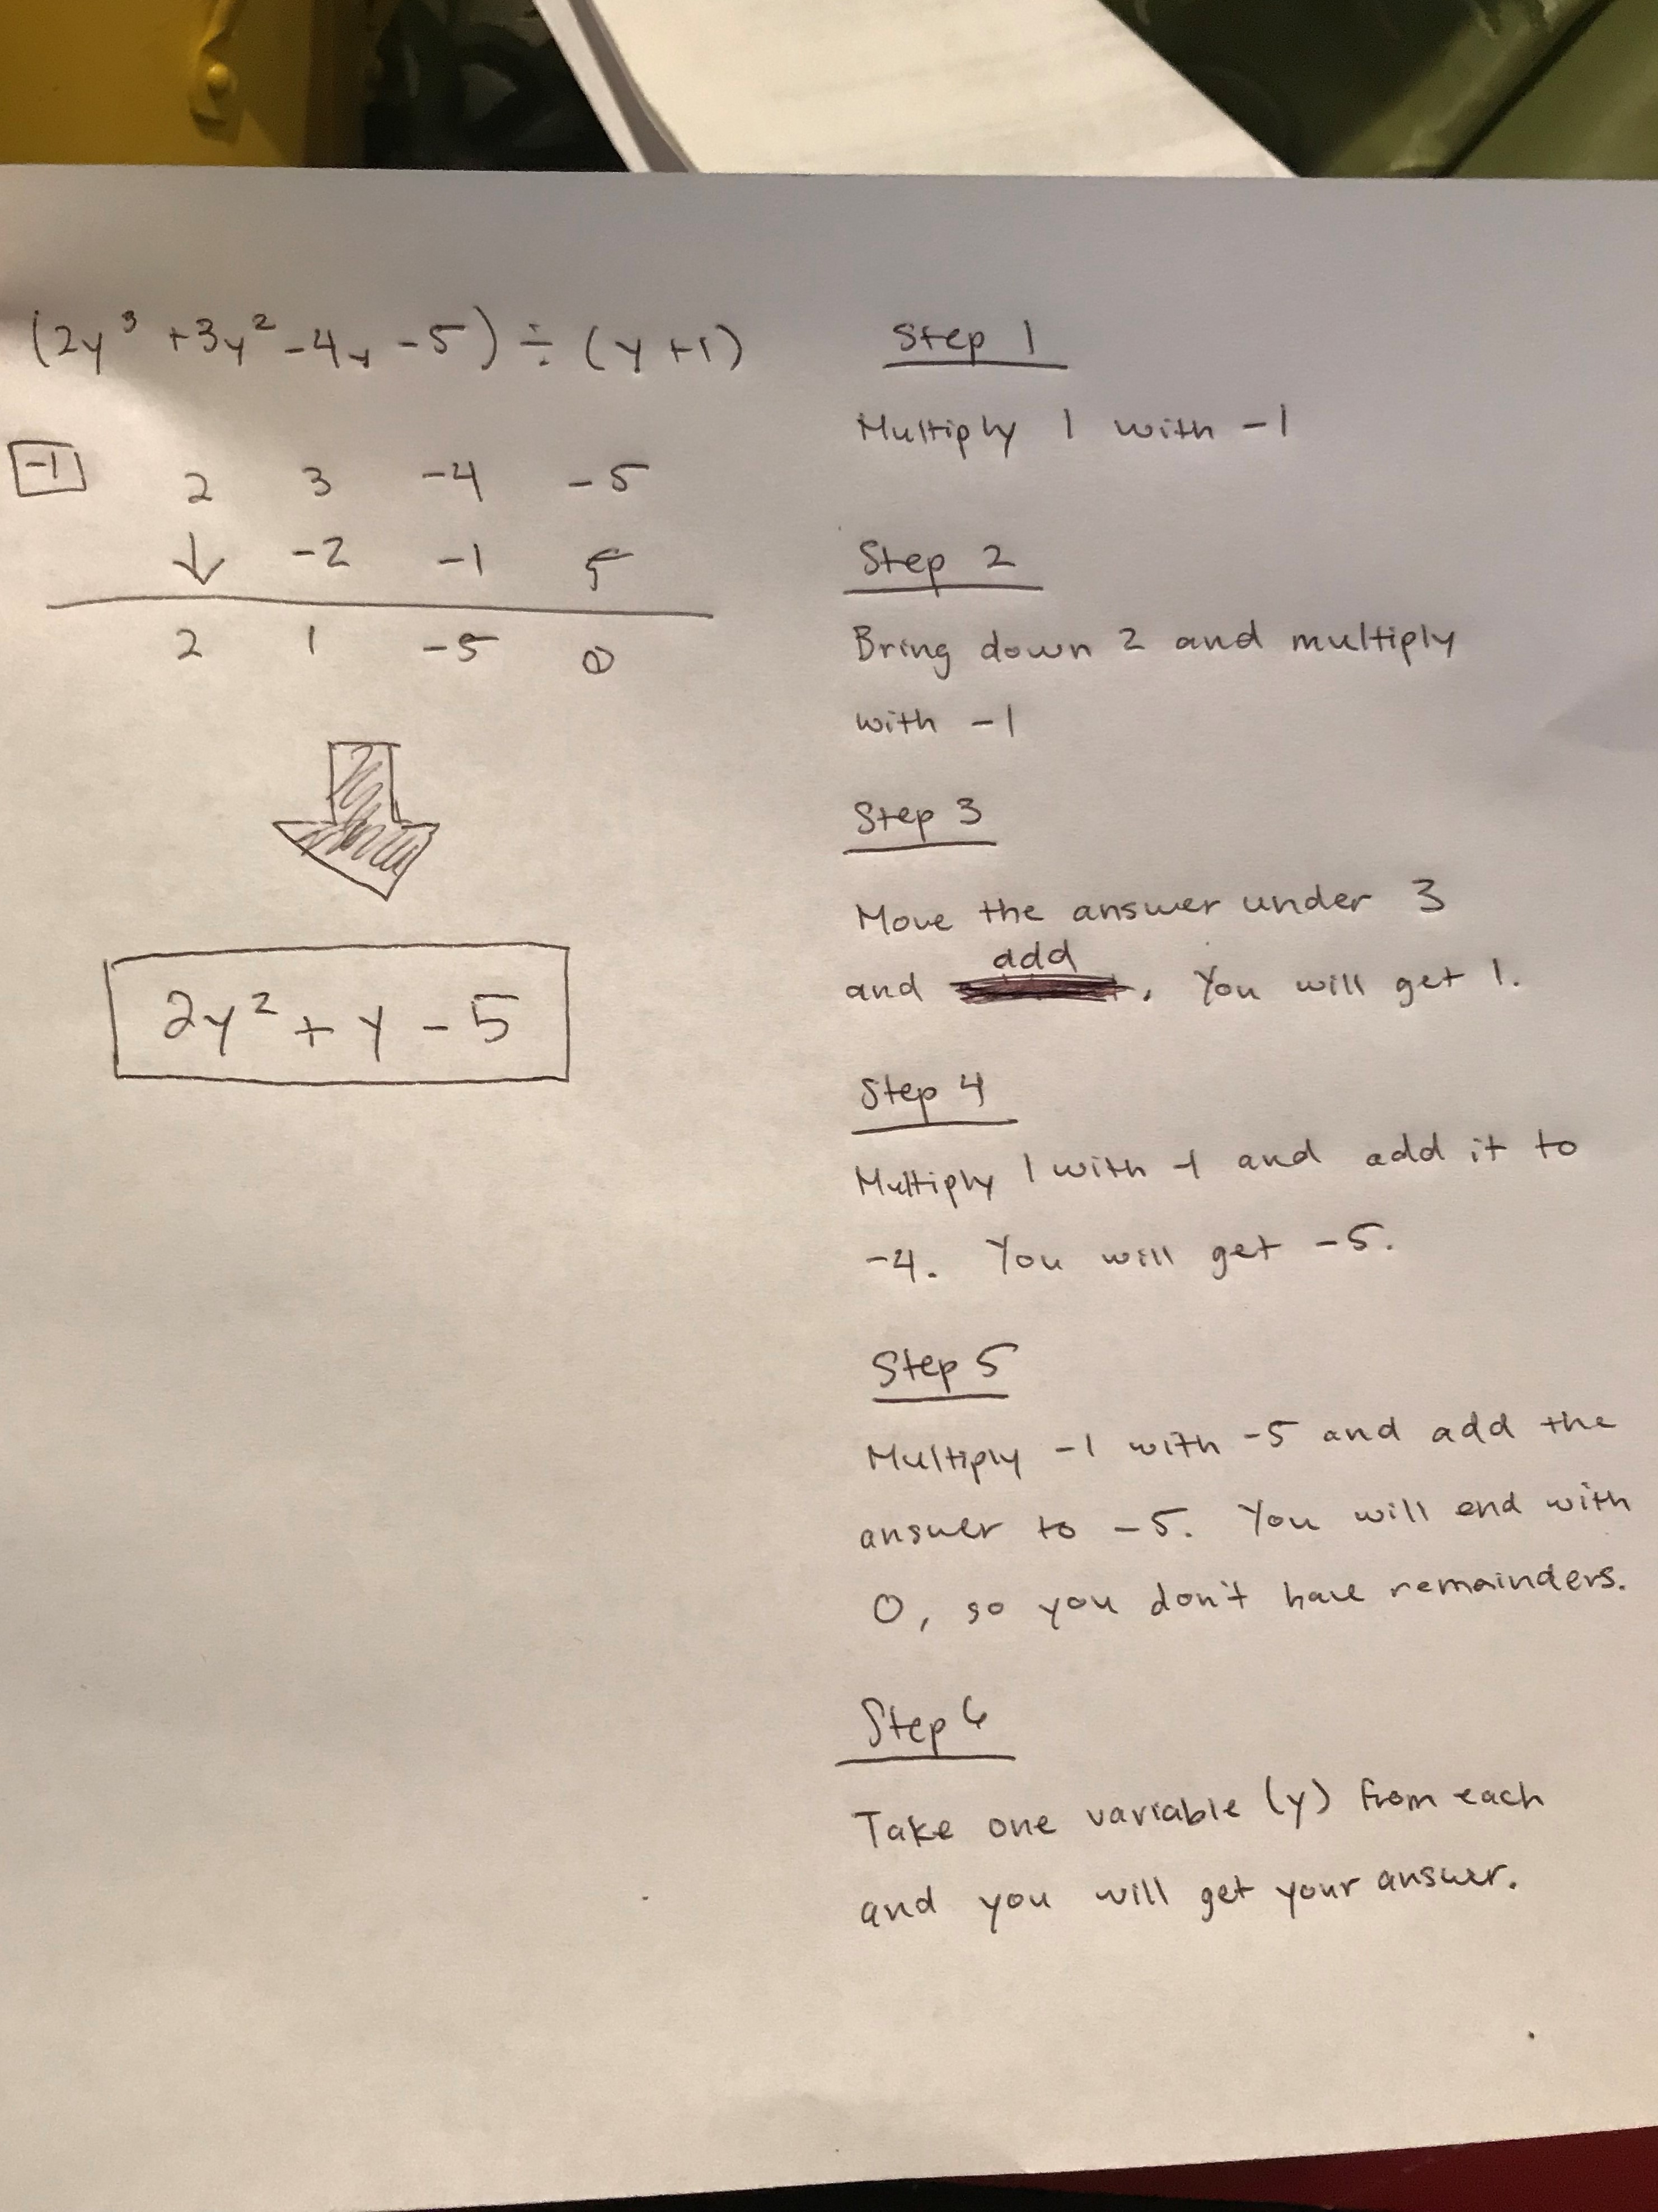 (2y³ +3y² -4y -5) ÷ (y +1)
-1 2 3 -4 -5
↓ -2 -1 5
2 1 -5 0
2y² + y - 5
Step 1
Multiply 1 with -1
Step 2
Bring down 2 and multiply
with -1
Step 3
Move the answer under 3
add
and . You will get 1.
Step 4
Multiply 1 with -1 and add it to
-4. You will get -5.
Step 5
Multiply -1 with -5 and add the
answer to -5. You will end with
0, so you don't have remainders.
Step 6
Take one variable (y) from each
and you will get your answer.